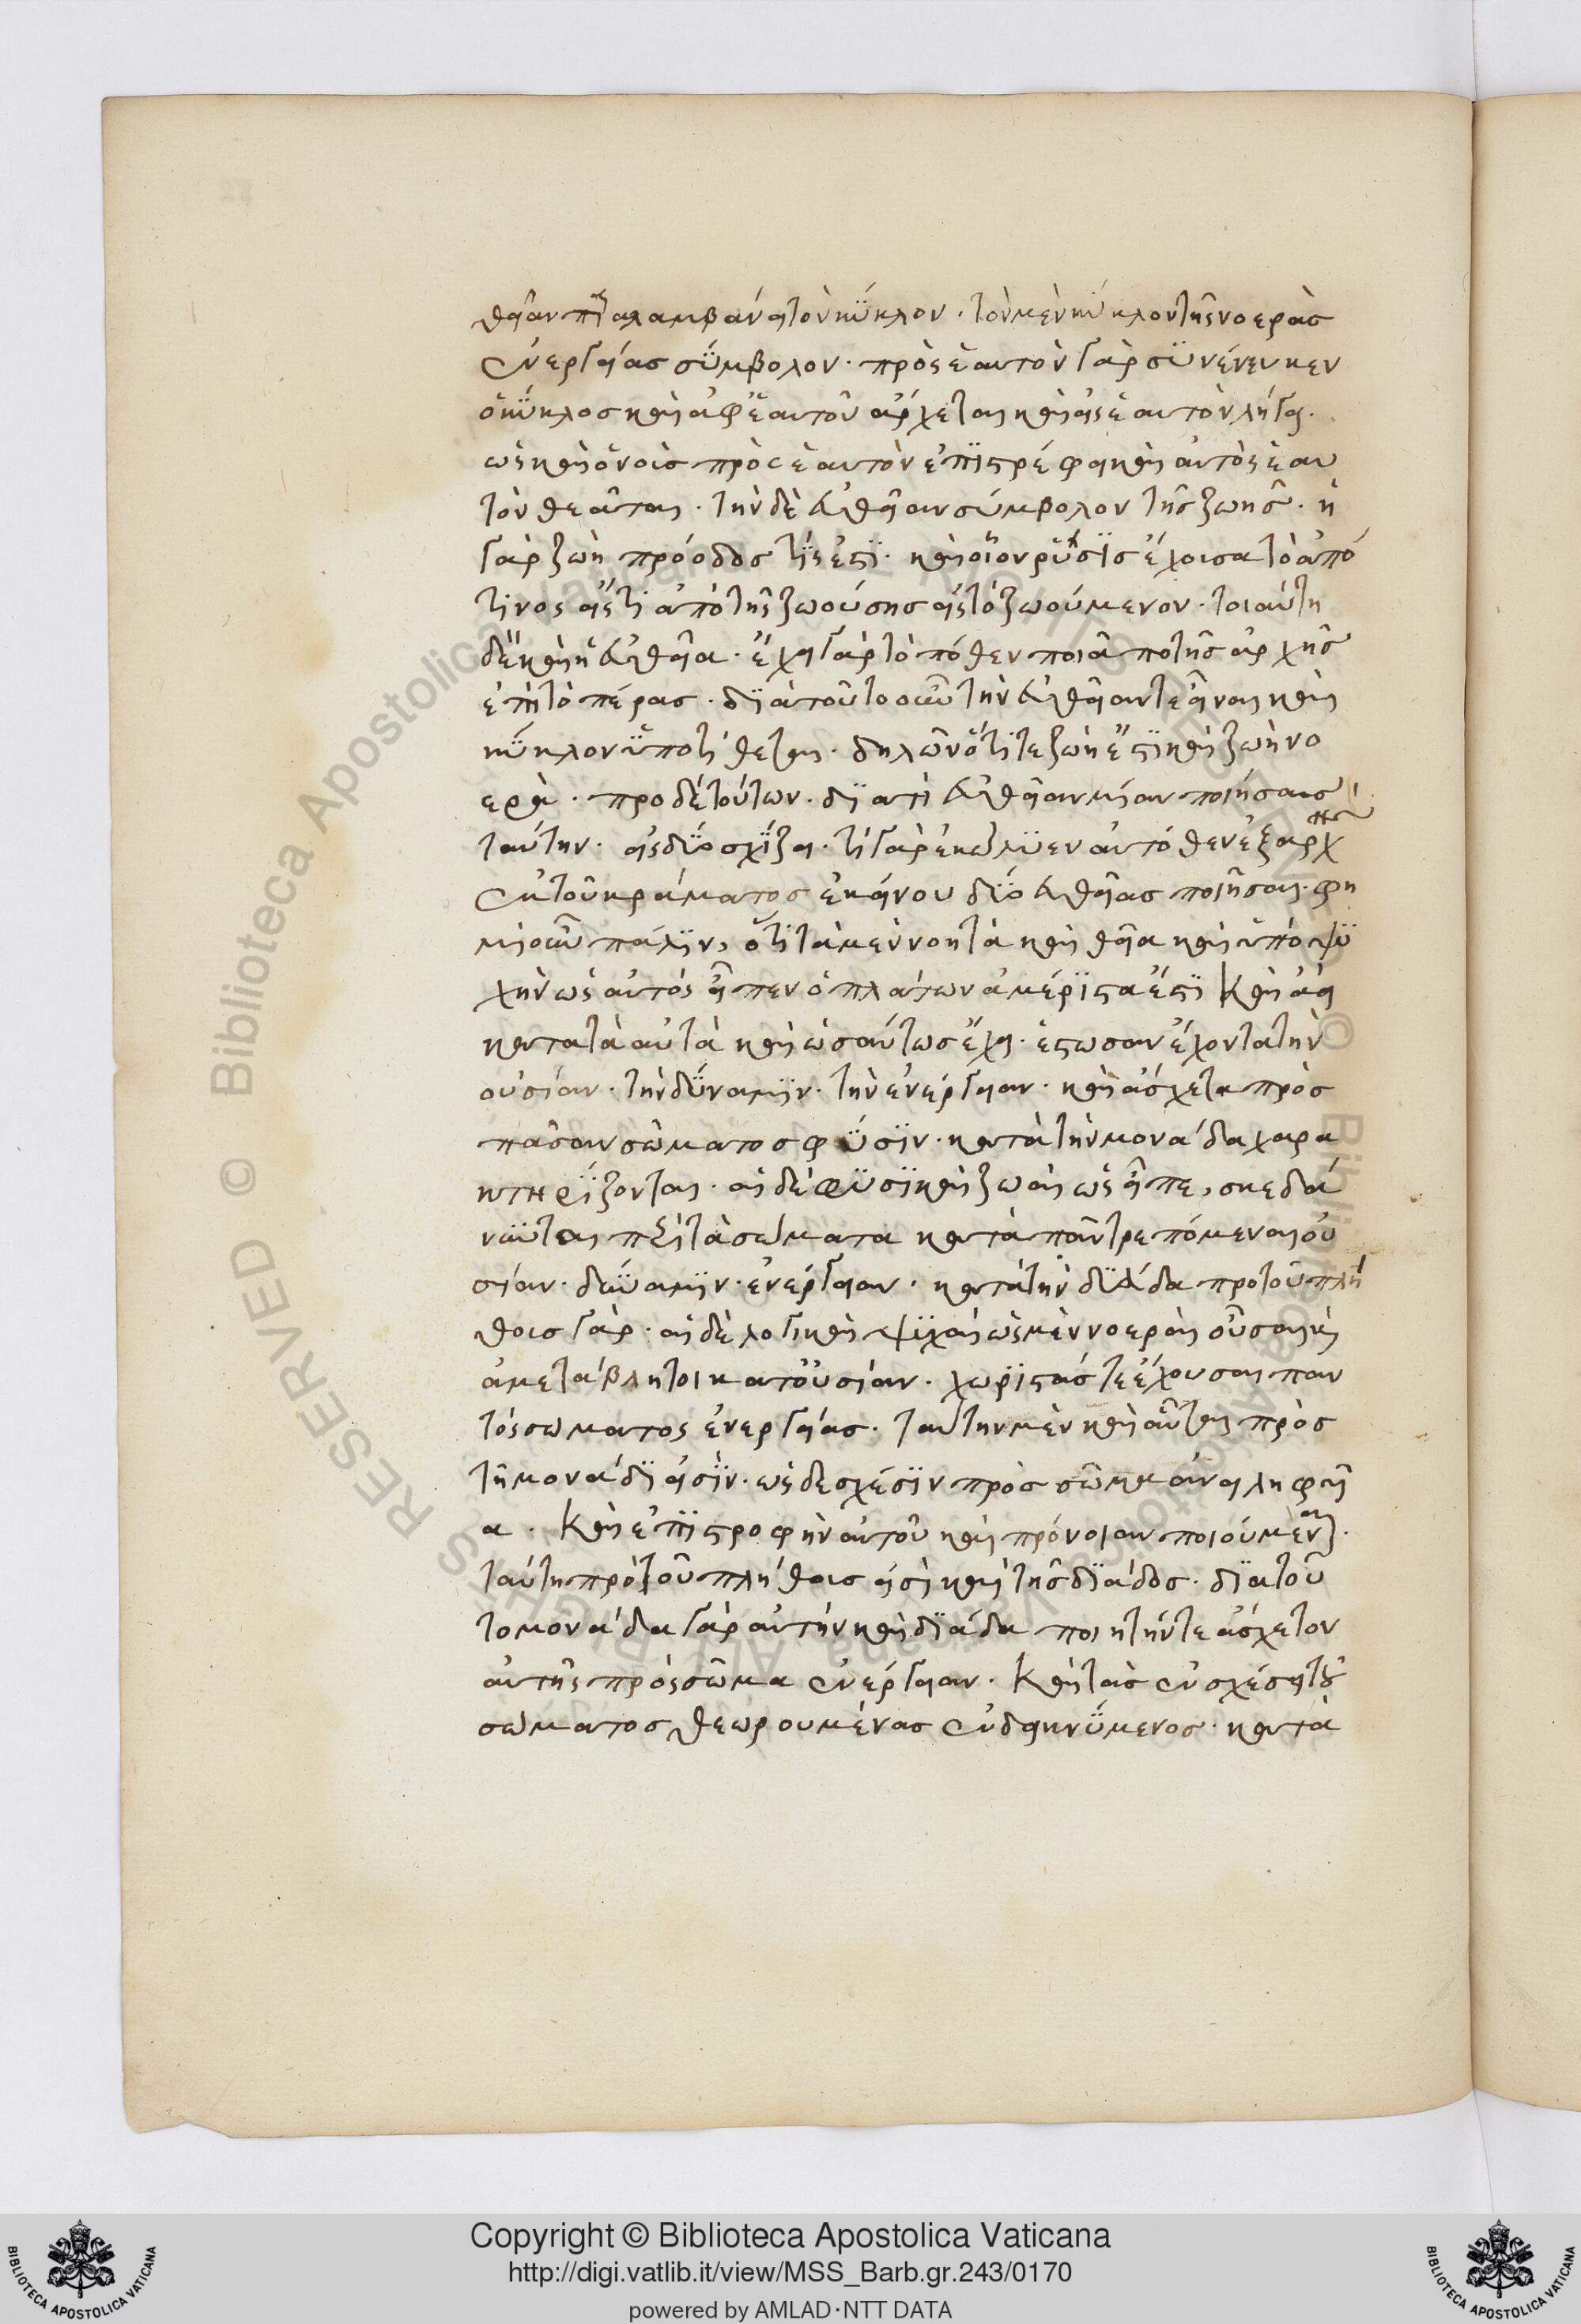 θεῖαν παραλαμβάνει τὸν κύκλον. τὸν μὲν κύκλον τῆς νοερὰς
ἐνεργείας σύμβολον. πρὸς ἑαυτὸν γὰρ συνένευκεν
ὁ κύκλος καὶ ἀφ' ἑαυτοῦ ἄρχεται καὶ εἰς ἑαυτὸν λήγει.
ὡς καὶ ὁ νοῦς πρὸς ἑαυτὸν ἐπιστρέφει καὶ αὐτὸς ἑαυ
τὸν θεᾶται. τὴν δὲ εὐθεῖαν σύμβολον τῆς ζωῆς. ἡ
γὰρ ζωὴ πρόοδος τίς ἐστι. καὶ οἷον ῥύσις ἔχουσα τὸ ἀπό
τινος εἴς τι ἀπὸ τῆς ζωούσης εἰς τὸ ζωούμενον. τοιαύτη
δὲ καὶ ἡ εὐθεῖα. ἔχει γὰρ τὸ πόθεν ποῖ ἀπο τῆς ἀρχῆς
ἐπὶ τὸ πέρας. διὰ τοῦτο οὖν τὴν εὐθεῖαν τε εἶναι καὶ
κύκλον ὑποτίθεται. δηλῶν ὅτι τε ζωὴ ἐστι καὶ ζωὴ νο
ερὰ. προ δὲ τούτων. διατὶ εὐθεῖαν μίαν ποιήσας
ταύτην. εἰς δύο σχίζει. τί γὰρ ἐκώλυεν αὐτόθεν ἐξ ἀρχῆς
ἐκ τοῦ κράματος ἐκείνου δύο εὐθείας ποιῆσαι. φη
μὶ οὖν πάλιν, ὅτι τὰ μὲν νοητὰ καὶ θεῖα καὶ ὑπὸ ψυ
χὴν ὡς αὐτός εἶπεν ὁ πλάτων ἀμέριστα ἐστι καὶ ἀεὶ
κατα τὰ αὐτὰ καὶ ὡσαύτως ἔχει. ἑστωσαν ἔχοντα τὴν
οὐσίαν. τὴν δύναμιν. τὴν ἐνέργειαν. καὶ ἄσχετα πρὸς
πᾶσαν σώματος φύσιν. κατὰ τὴν μονάδα χαρα
κτηρίζονται. αἱ δὲ φυσικαὶ ζωαὶ ὡς εἶπε, σκεδά
νυνται περὶ τὰ σώματα κατὰ πᾶν τρεπόμεναι οὐ
σίαν. δύναμιν. ἐνέργειαν. κατὰ τὴν δυάδα προ τοῦ πλή
θους γὰρ. αἱ δὲ λογικαὶ ψυχαὶ ὡς μὲν νοεραὶ οὖσαι καὶ
ἀμετάβλητοι κατ' οὐσίαν. χωριστάς τε ἔχουσαι παν
τὸς σωματος ἐνεργείας. ταύτην μὲν καὶ αὗται πρὸς
τῆ μονάδι εἰσὶν. ὡς δε σχέσιν πρὸς σῶμα ἀνειληφυῖ
α. καὶ ἐπιστροφὴν αὐτοῦ καὶ πρόνοιαν ποιούμεναι.
ταύτη πρὸ τοῦ πλήθους εἰσὶ καὶ τῆς δυάδος. διὰ τοῦ
το μονάδα γὰρ αὐτὴν καὶ δυάδα ποιητὴν τε ἄσχετον
αὐτῆς πρὸς σῶμα ἐνέργειαν. καὶ τὰς ἐν σχέσει τοῦ
σώματος θεωρουμένας ἐνδεικνύμενος. κατὰ
Copyright © Biblioteca Apostolica Vaticana
http://digi.vatlib.it/view/MSS_Barb.gr.243/0170
powered by AMLAD·NTT DATA